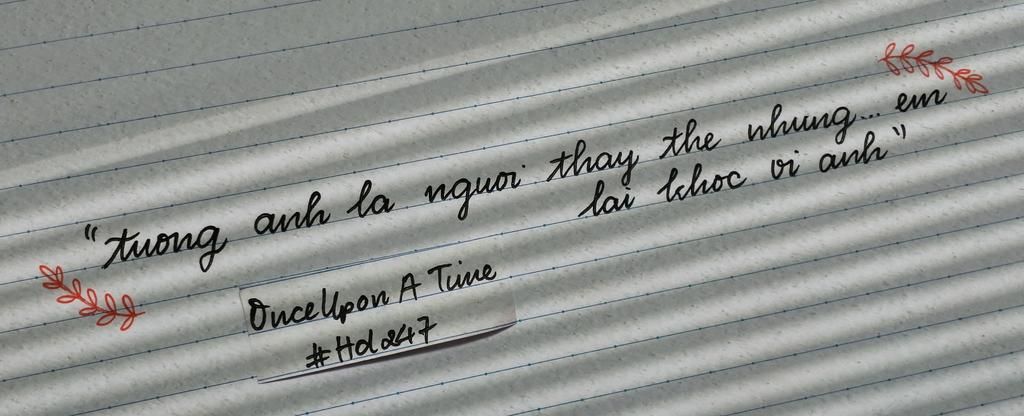 "tuong anh la nguoi thay the nhung... em
lai khoc vi anh"
Once Upon A Time
#Hd247